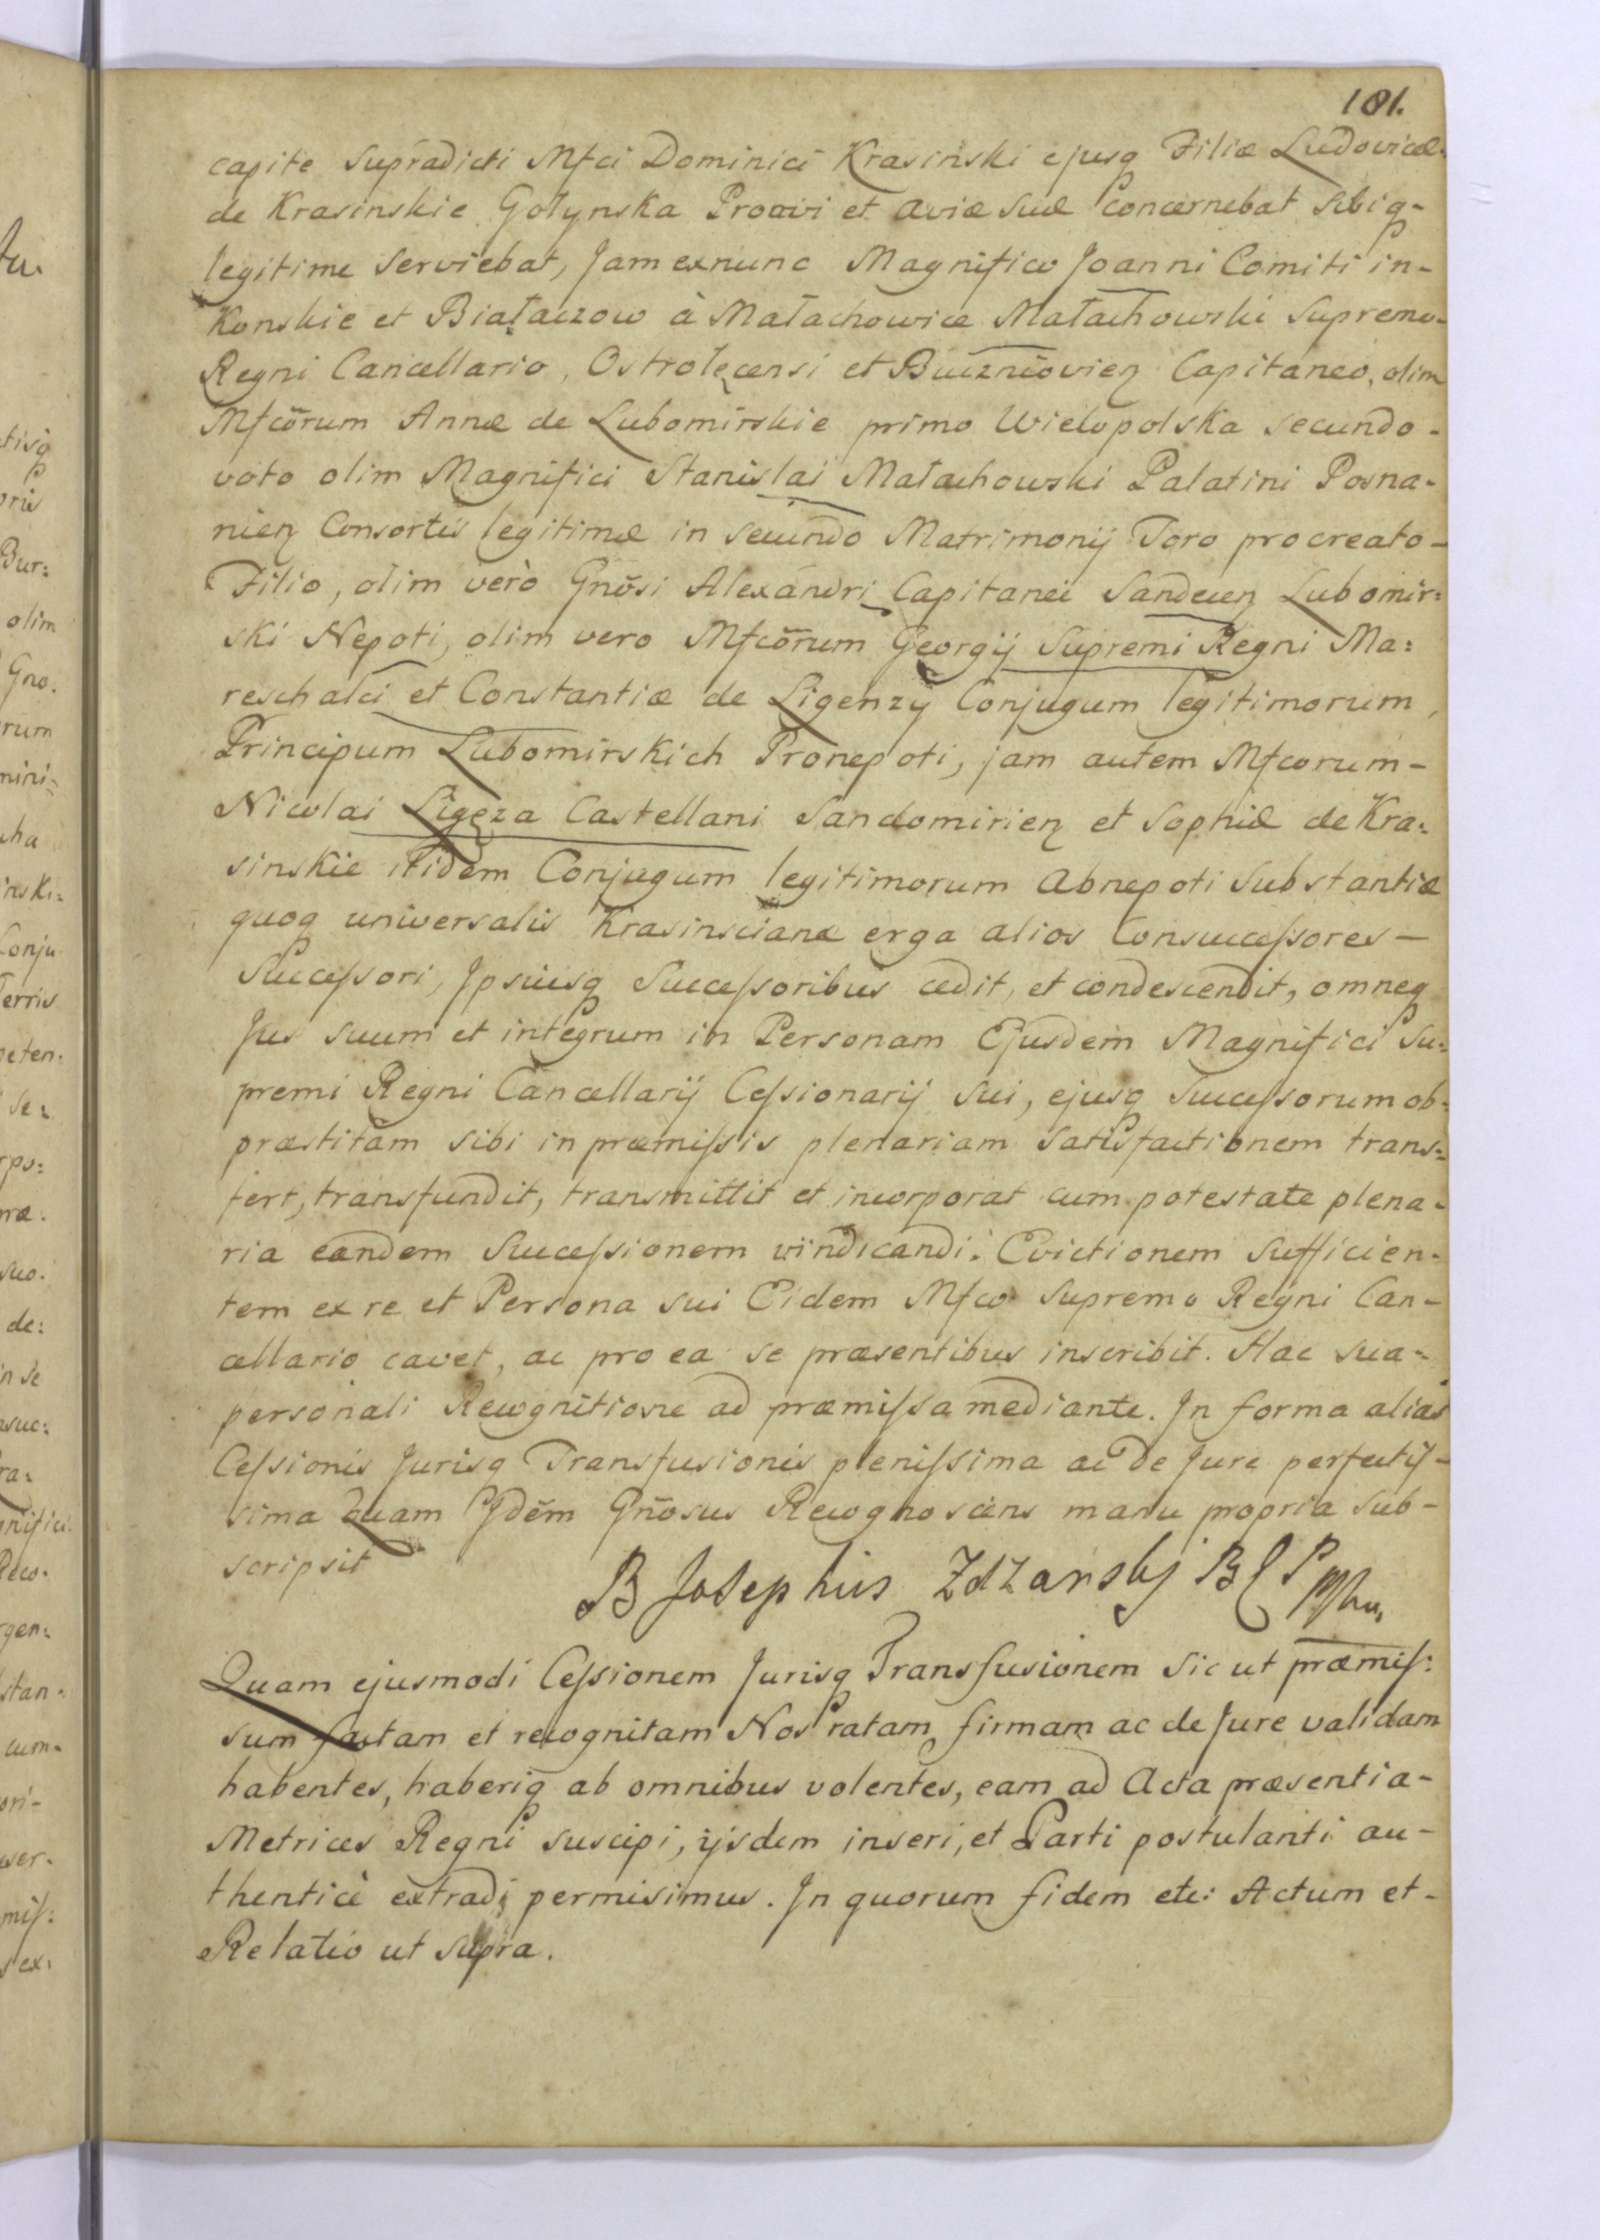 181.
capite supradicti Mfci Dominici Krasinski ejusq Filiæ Ludovicæ-
de Krasinskie Gołynska Proavi et Aviæ suæ concernebat sibiq-
legitime serviebat, Jam exnunc Magnifico Joanni Comiti in-
Konskie et Białaczow à Małachowice Małachowski Supremo-
Regni Cancellario, Ostrołęcensi et Capitaneo, olim
Mfcõrum Annæ de Lubomirskie primo Wielopolska secundo-
voto olim Magnifici Stanislai Małachowski Palatini Posna-
nien Consortis legitimæ in secundo Matrimonij Toro procreato-
Filio, olim verò Gnõsi Alexandri Capitanei Sandecen Lubomir=
ski Nepoti, olim vero Mfcõrum Georgij Supremi Regni Ma=
reschalci et Constantiæ de Ligenzy Conjugum legitimorum,
Principum Lubomirskich Pronepoti, jam autem Mfcorum-
Nicolai Ligęza Castellani Sandomirien et Sophiæ de Kra=
sinskie itidem Conjugum legitimorum Abnepoti Substantiæ
quoq universalis Krasinscianæ erga alios Consuccessores-
Successori, Ipsiusq Successoribus cedit, et condescendit, omneq
Jus suum et integrum in Personam Ejusdem Magnifici Su=
premi Regni Cancellarij Cessionarij sui, ejusq Successorum ob-
præstitam sibi in præmissis plenariam satisfactionem trans=
fert, transfundit, transmittit et incorporat cum potestate plena-
ria eandem Successionem vindicandi: Evictionem sufficien-
tem ex re et Persona sui Eidem Mfco Supremo Regni Can-
cellario cavet, ac pro ea se præsentibus inscribit. Hac sua-
personali Recognitione ad præmissa mediante. In forma alias
Cessionis Jurisq Transfusionis plenissima ac de Jure perfectis-
sima quam Jdẽm Gñosus Recognoscens manu propria sub-
scripsit
B Josephus Zdzarsky B C P mpp
Quam ejusmodi Cessionem Jurisq Transfusionem sic ut præmis=
sum factam et recognitam Nos ratam, firmam ac de Jure validam
habentes, haberiq ab omnibus volentes, eam ad Acta præsentia-
Metrices Regni suscipi, ijsdem inseri, et Parti postulanti au-
thenticè extradi permisimus. In quorum fidem etc: Actum et-
Relatio ut supra.